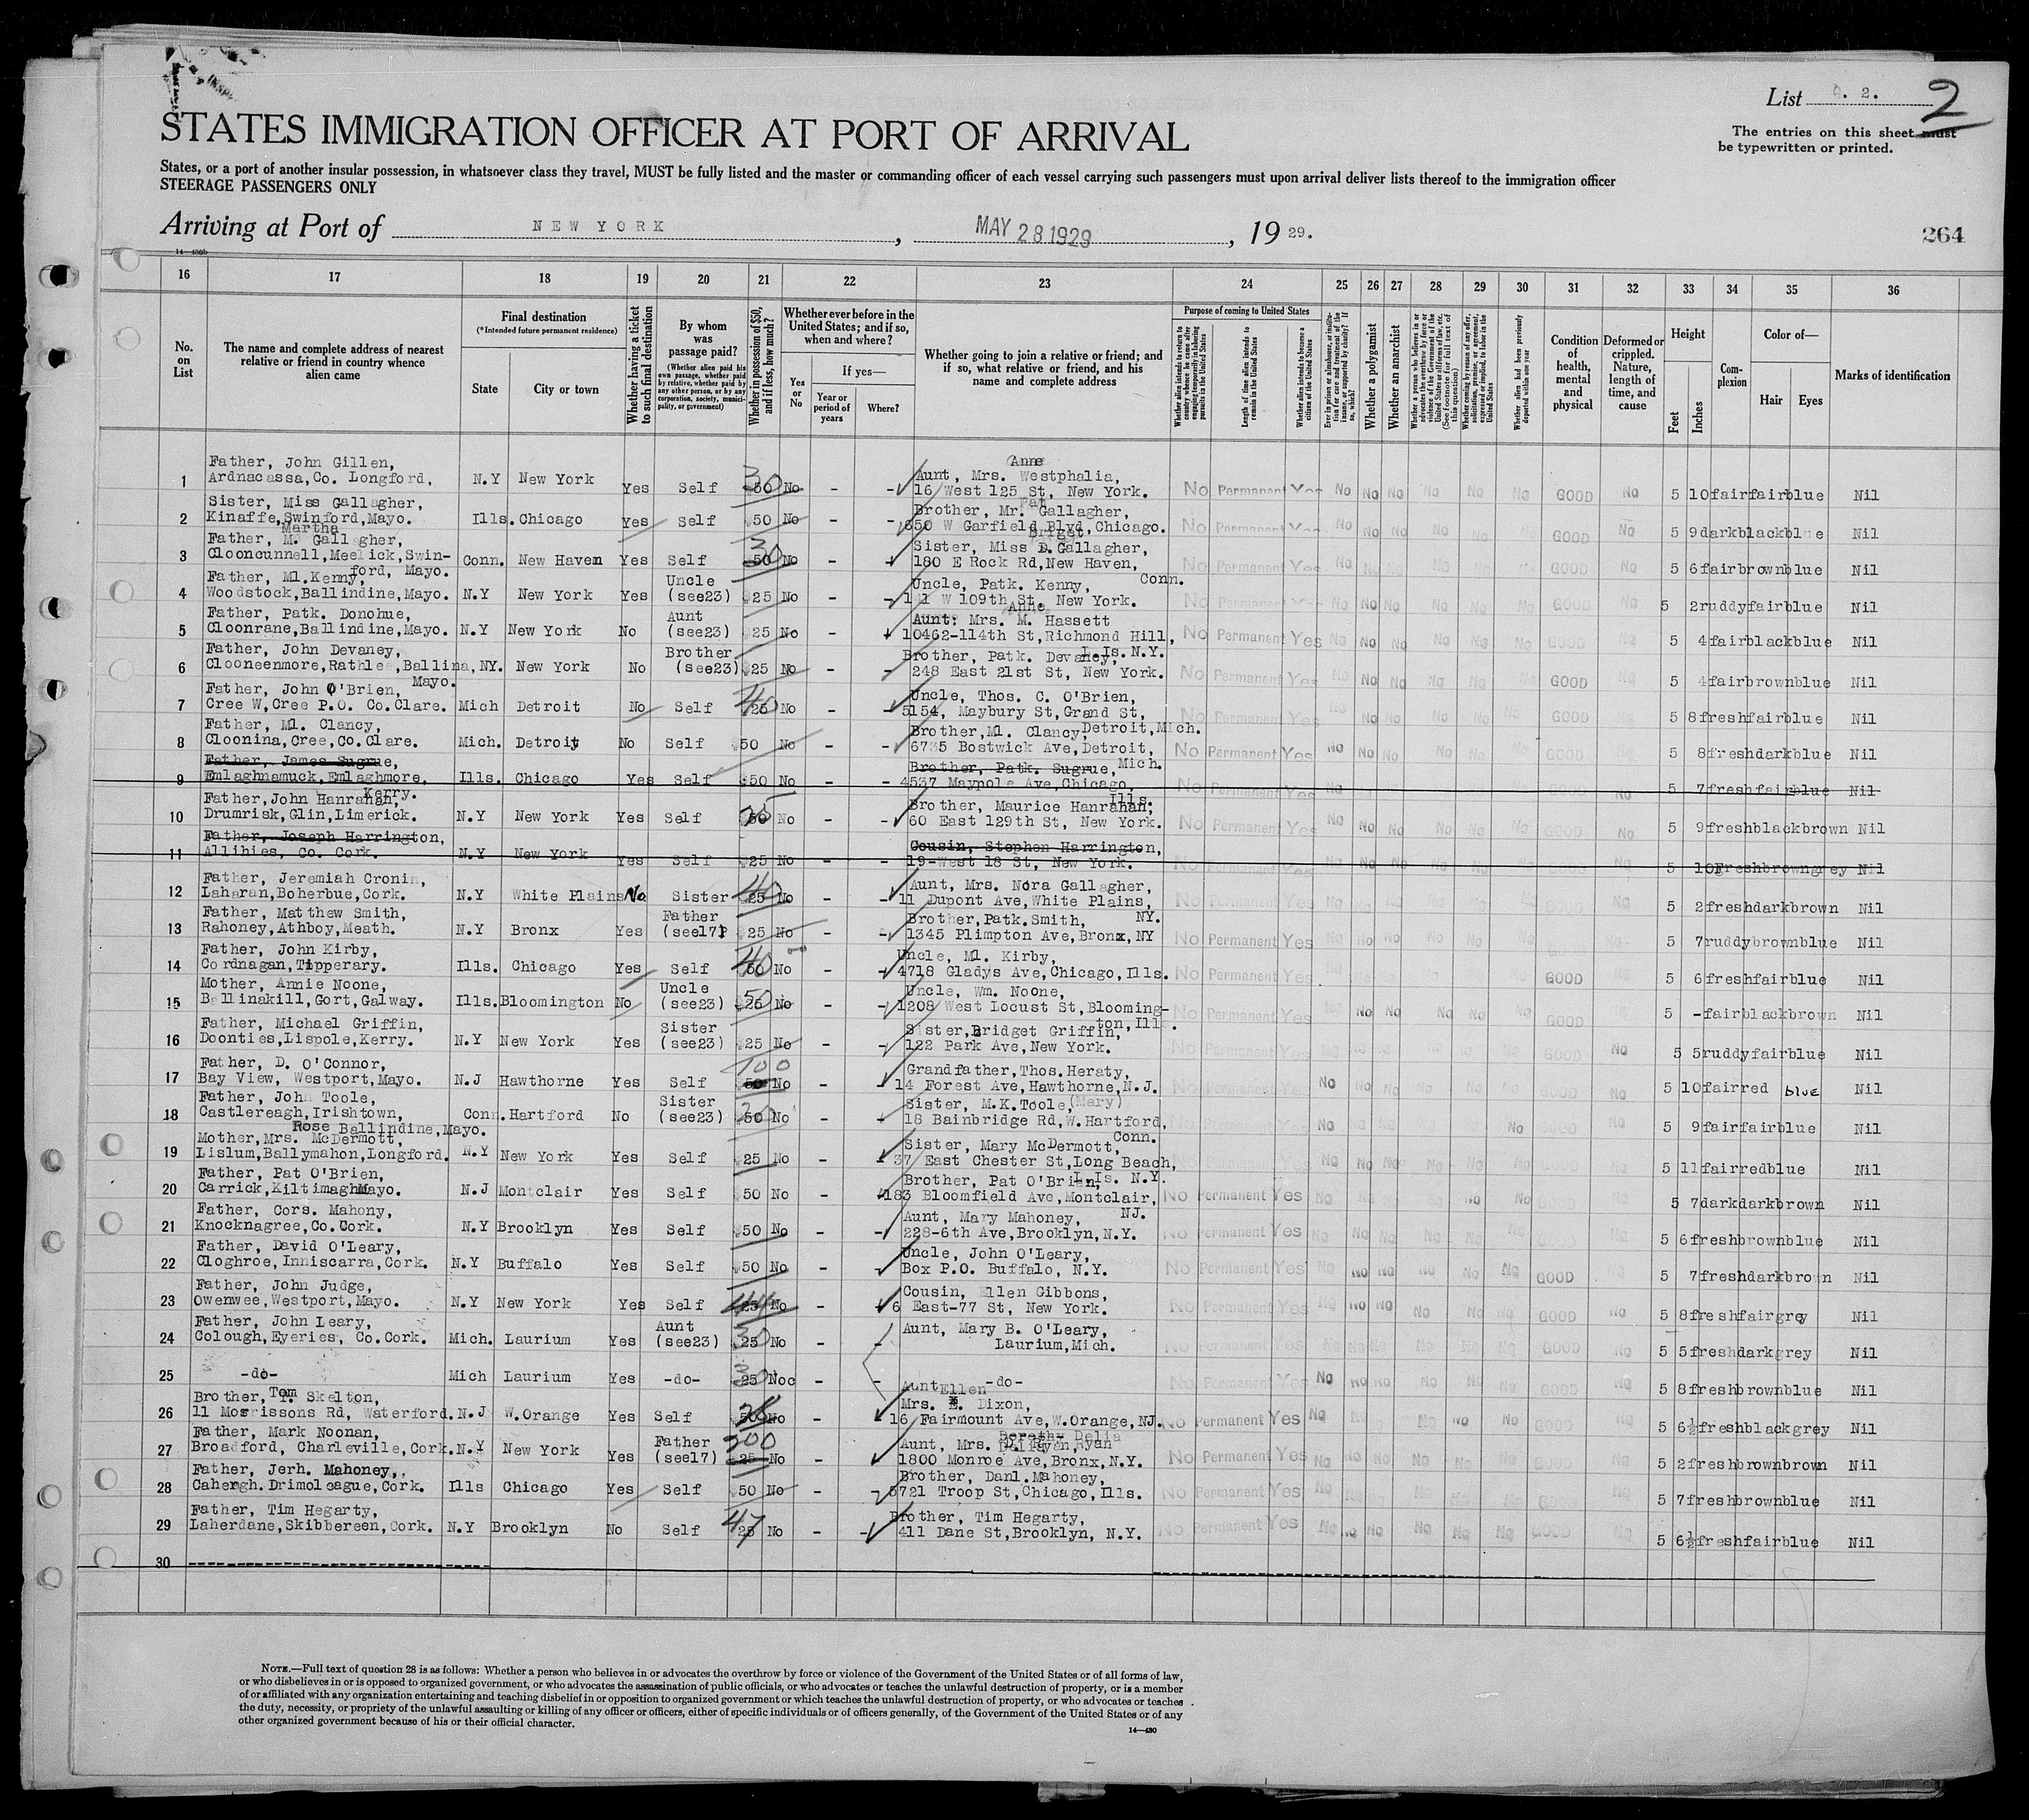 List 2. 2
STATES IMMIGRATION OFFICER AT PORT OF ARRIVAL
The entries on this sheet must
be typewritten or printed.
States, or a port of another insular possession, in whatsoever class they travel, MUST be fully listed and the master or commanding officer of each vessel carrying such passengers must upon arrival deliver lists thereof to the immigration officer
STEERAGE PASSENGERS ONLY
Arriving at Port of NEW YORK, MAY 28 1929, 19 29.
264
14-430b
16 17 18 19 20 21 22 23 24 25 26 27 28 29 30 31 32 33 34 35 36
No. on List
The name and complete address of nearest relative or friend in country whence alien came
Final destination
(*Intended future permanent residence)
State
City or town
Whether having a ticket to such final destination
By whom was passage paid?
(Whether alien paid his own passage, whether paid by relative, whether paid by any other person, or by any corporation, society, municipality, or government)
Whether in possession of $50, and if less, how much?
Whether ever before in the United States; and if so, when and where?
Yes or No
If yes—
Year or period of years
Where?
Whether going to join a relative or friend; and if so, what relative or friend, and his name and complete address
Purpose of coming to United States
Length of time alien intends to remain in the United States
Whether alien intends to become a citizen of the United States
Whether a polygamist
Whether an anarchist
Condition of health, mental and physical
Deformed or crippled. Nature, length of time, and cause
Height
Feet
Inches
Complexion
Color of—
Hair
Eyes
Marks of identification
Father, John Gillen, Anne
1 Ardnacassa, Co. Longford, N.Y New York Yes Self 30 No - - Aunt, Mrs. Westphalia,
16 West 125 St, New York. No Permanent Yes No No No No No No GOOD No 5 10 fair fair blue Nil
Sister, Miss Gallagher, Pat
2 Kinaffe, Swinford, Mayo. Ills. Chicago Yes Self 50 No - - Brother, Mr. Gallagher,
650 W Garfield Blvd, Chicago. No Permanent Yes No No No No No No GOOD No 5 9 dark black blue Nil
Martha
Father, M. Gallagher, Briget,
3 Clooncunnell, Meelick, Swin- Conn. New Haven Yes Self 30 50 No - - Sister, Miss D. Gallagher,
ford, Mayo. 180 E Rock Rd, New Haven, Conn. 5 6 fair brown blue Nil
Father, Ml. Kenny, Uncle Uncle, Patk. Kenny,
4 Woodstock, Ballindine, Mayo. N.Y New York Yes (see23) 25 No - - W 109th St. New York. GOOD No 5 2 ruddy fair blue Nil
Father, Patk. Donohue, Aunt Anne
5 Cloonrane, Ballindine, Mayo. N.Y New York No (see23) 25 No - Aunt: Mrs. M. Hassett
10462-114th St, Richmond Hill, L.Is. N.Y. No Permanent Yes 5 4 fair black blue Nil
Father, John Devaney, Brother Brother, Patk. Devaney,
6 Clooneenmore, Rathlee, Ballina, Mayo. NY. New York No (see23) 25 No - - 248 East 21st St, New York. No Permanent Yes GOOD 5 4 fair brown blue Nil
Father, John O'Brien, Uncle, Thos. C. O'Brien,
7 Cree W, Cree P.O. Co. Clare. Mich Detroit No Self 40 25 No - - 5154, Maybury St, Grand St, Detroit, Mich. 5 8 fresh fair blue Nil
Father, Ml. Clancy, Brother, Ml. Clancy,
8 Cloonina, Cree, Co. Clare. Mich. Detroit No Self 50 No - - 6735 Bostwick Ave, Detroit, Mich. No Permanent Yes 5 8 fresh dark blue Nil
Father, James Sugrue, Brother, Patk. Sugrue,
9 Emlaghnamuck, Emlaghmore, Kerry. Ills. Chicago Yes Self 50 No - - 4537 Maypole Ave, Chicago, Ills. 5 7 fresh fair blue Nil
Father, John Hanrahan, Brother, Maurice Hanrahan,
10 Drumrisk, Glin, Limerick. N.Y New York Yes Self No - - 60 East 129th St, New York. No Permanent Yes 5 9 fresh black brown Nil
Father, Joseph Harrington, Cousin, Stephen Harrington,
11 Allihies, Co. Cork. N.Y New York Yes Self 25 No - - 19 West 18 St, New York. 5 10 Fresh brown grey Nil
Father, Jeremiah Cronin, Aunt, Mrs. Nora Gallagher,
12 Laharan, Boherbue, Cork. N.Y White Plains No Sister 40 25 No - - 11 Dupont Ave, White Plains, NY. 5 2 fresh dark brown Nil
Father, Matthew Smith, Father Brother, Patk. Smith,
13 Rahoney, Athboy, Meath. N.Y Bronx Yes (see17) 25 No - - 1345 Plimpton Ave, Bronx, NY No Permanent Yes 5 7 ruddy brown blue Nil
Father, John Kirby, Uncle, Ml. Kirby,
14 Cordnagan, Tipperary. Ills. Chicago Yes Self 40 No - - 4718 Gladys Ave, Chicago, Ills. GOOD 5 6 fresh fair blue Nil
Mother, Annie Noone, Uncle Uncle, Wm. Noone,
15 Ballinakill, Gort, Galway. Ills. Bloomington No (see23) 50 25 No - - 1208 West Locust St, Blooming-
ton, Ills. GOOD 5 - fair black brown Nil
Father, Michael Griffin, Sister Sister, Bridget Griffin,
16 Doonties, Lispole, Kerry. N.Y New York Yes (see23) 25 No - - 122 Park Ave, New York. No 5 5 ruddy fair blue Nil
Father, D. O'Connor, 100 Grandfather, Thos. Heraty,
17 Bay View, Westport, Mayo. N.J Hawthorne Yes Self 50 No - - 14 Forest Ave, Hawthorne, N.J. No 5 10 fair red blue Nil
Father, John Toole, Sister Sister, M.K. Toole, (Mary)
18 Castlereagh, Irishtown, Ballindine, Mayo. Conn. Hartford No (see23) 50 No - - 18 Bainbridge Rd, W. Hartford, Conn. 5 9 fair fair blue Nil
Rose
Mother, Mrs. McDermott, Sister, Mary McDermott,
19 Lislum, Ballymahon, Longford. N.Y New York Yes Self 25 No - - 37 East Chester St, Long Beach, L.Is. N.Y. 5 11 fair red blue Nil
Father, Pat O'Brien, Brother, Pat O'Brien,
20 Carrick, Kiltimagh Mayo. N.J Montclair Yes Self 50 No - 183 Bloomfield Ave, Montclair, NJ. No Permanent Yes 5 7 dark dark brown Nil
Father, Cors. Mahony, Aunt, Mary Mahoney,
21 Knocknagree, Co. Cork. N.Y Brooklyn Yes Self 50 No - - 228-6th Ave, Brooklyn, N.Y. No Permanent Yes 5 6 fresh brown blue Nil
Father, David O'Leary, Uncle, John O'Leary,
22 Cloghroe, Inniscarra, Cork. N.Y Buffalo Yes Self 50 No - - Box P.O. Buffalo, N.Y. No Permanent Yes GOOD 5 7 fresh dark brown Nil
Father, John Judge, Cousin, Ellen Gibbons,
23 Owenwee, Westport, Mayo. N.Y New York Yes Self 25 No - 6 East-77 St, New York. GOOD 5 8 fresh fair grey Nil
Father, John Leary, Aunt Aunt, Mary B. O'Leary,
24 Colough, Eyeries, Co. Cork. Mich. Laurium Yes (see23) 30 25 No - - Laurium, Mich. GOOD 5 5 fresh dark grey Nil
25 -do- Mich Laurium Yes -do- 25 No - - -do- 5 8 fresh brown blue Nil
Brother, Tom T. Skelton, Aunt Ellen
26 11 Morrissons Rd, Waterford. N.J W. Orange Yes Self 50 No - Mrs. E. Dixon,
16 Fairmount Ave, W. Orange, NJ. No Permanent Yes 5 6½ fresh black grey Nil
Father, Mark Noonan, Father 200 Delia
27 Broadford, Charleville, Cork. N.Y New York Yes (see17) 25 No - Aunt, Mrs. Ryan
1800 Monroe Ave, Bronx, N.Y. No Permanent Yes 5 2 fresh brown brown Nil
Father, Jerh. Mahoney, Brother, Danl. Mahoney,
28 Cahergh. Drimoleague, Cork. Ills Chicago Yes Self 50 No - - 5721 Troop St, Chicago, Ills. 5 7 fresh brown blue Nil
Father, Tim Hegarty, Brother, Tim Hegarty,
29 Laherdane, Skibbereen, Cork. N.Y Brooklyn No Self 47 25 No - - 411 Dane St, Brooklyn, N.Y. 5 6½ fresh fair blue Nil
30
NOTE.—Full text of question 28 is as follows: Whether a person who believes in or advocates the overthrow by force or violence of the Government of the United States or of all forms of law,
or who disbelieves in or is opposed to organized government, or who advocates the assassination of public officials, or who advocates or teaches the unlawful destruction of property, or is a member
of or affiliated with any organization entertaining and teaching disbelief in or opposition to organized government or which teaches the unlawful destruction of property, or who advocates or teaches
the duty, necessity, or propriety of the unlawful assaulting or killing of any officer or officers, either of specific individuals or of officers generally, of the Government of the United States or of any
other organized government because of his or their official character.
14-430